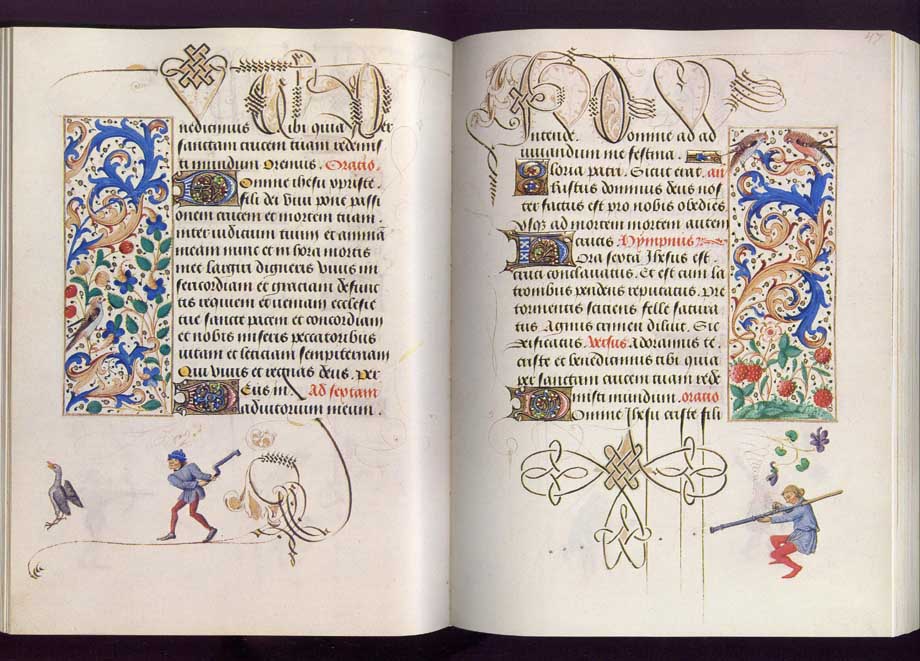 nedicimus Tibi quia per
sanctam crucem tuam redemis
ti mundum Oremus. Oracio.
Domine ihesu xpriste.
fili dei vivi pone pass
onem crucem et mortem tuam.
inter iudicium tuum et animã
meam nunc et in hora mortis
mee largiri digneris vivis mi
sericordiam et graciam defunc
tis requiem et veniam ecclesie
tue sancte pacem et concordiam
et nobis miseris peccatoribus
vitam et leticiam sempiternam
Qui vivis et regnas deus. per
Deus in. Ad septam
adiutorium meum.
47
Intende. Domine ad ad
iuvandum me festina.
Gloria patri. Sicut erat. an
hristus dominus deus nos
ter factus est pro nobis obediẽs
usque ad mortem mortem autem
crucis Hympnus
Hora septa Ihesus est
cruci conclavatus. Et est cum la
tronibus pendens reputatus. Pre
tormentis sciciens felle satura
tus Agnus crimen diluit. Sic
Versus Adoramus te
criste et benedicimus tibi quia
per sanctam crucem tuam rede
misti mundum. oracio
Domine Ihesu criste fili